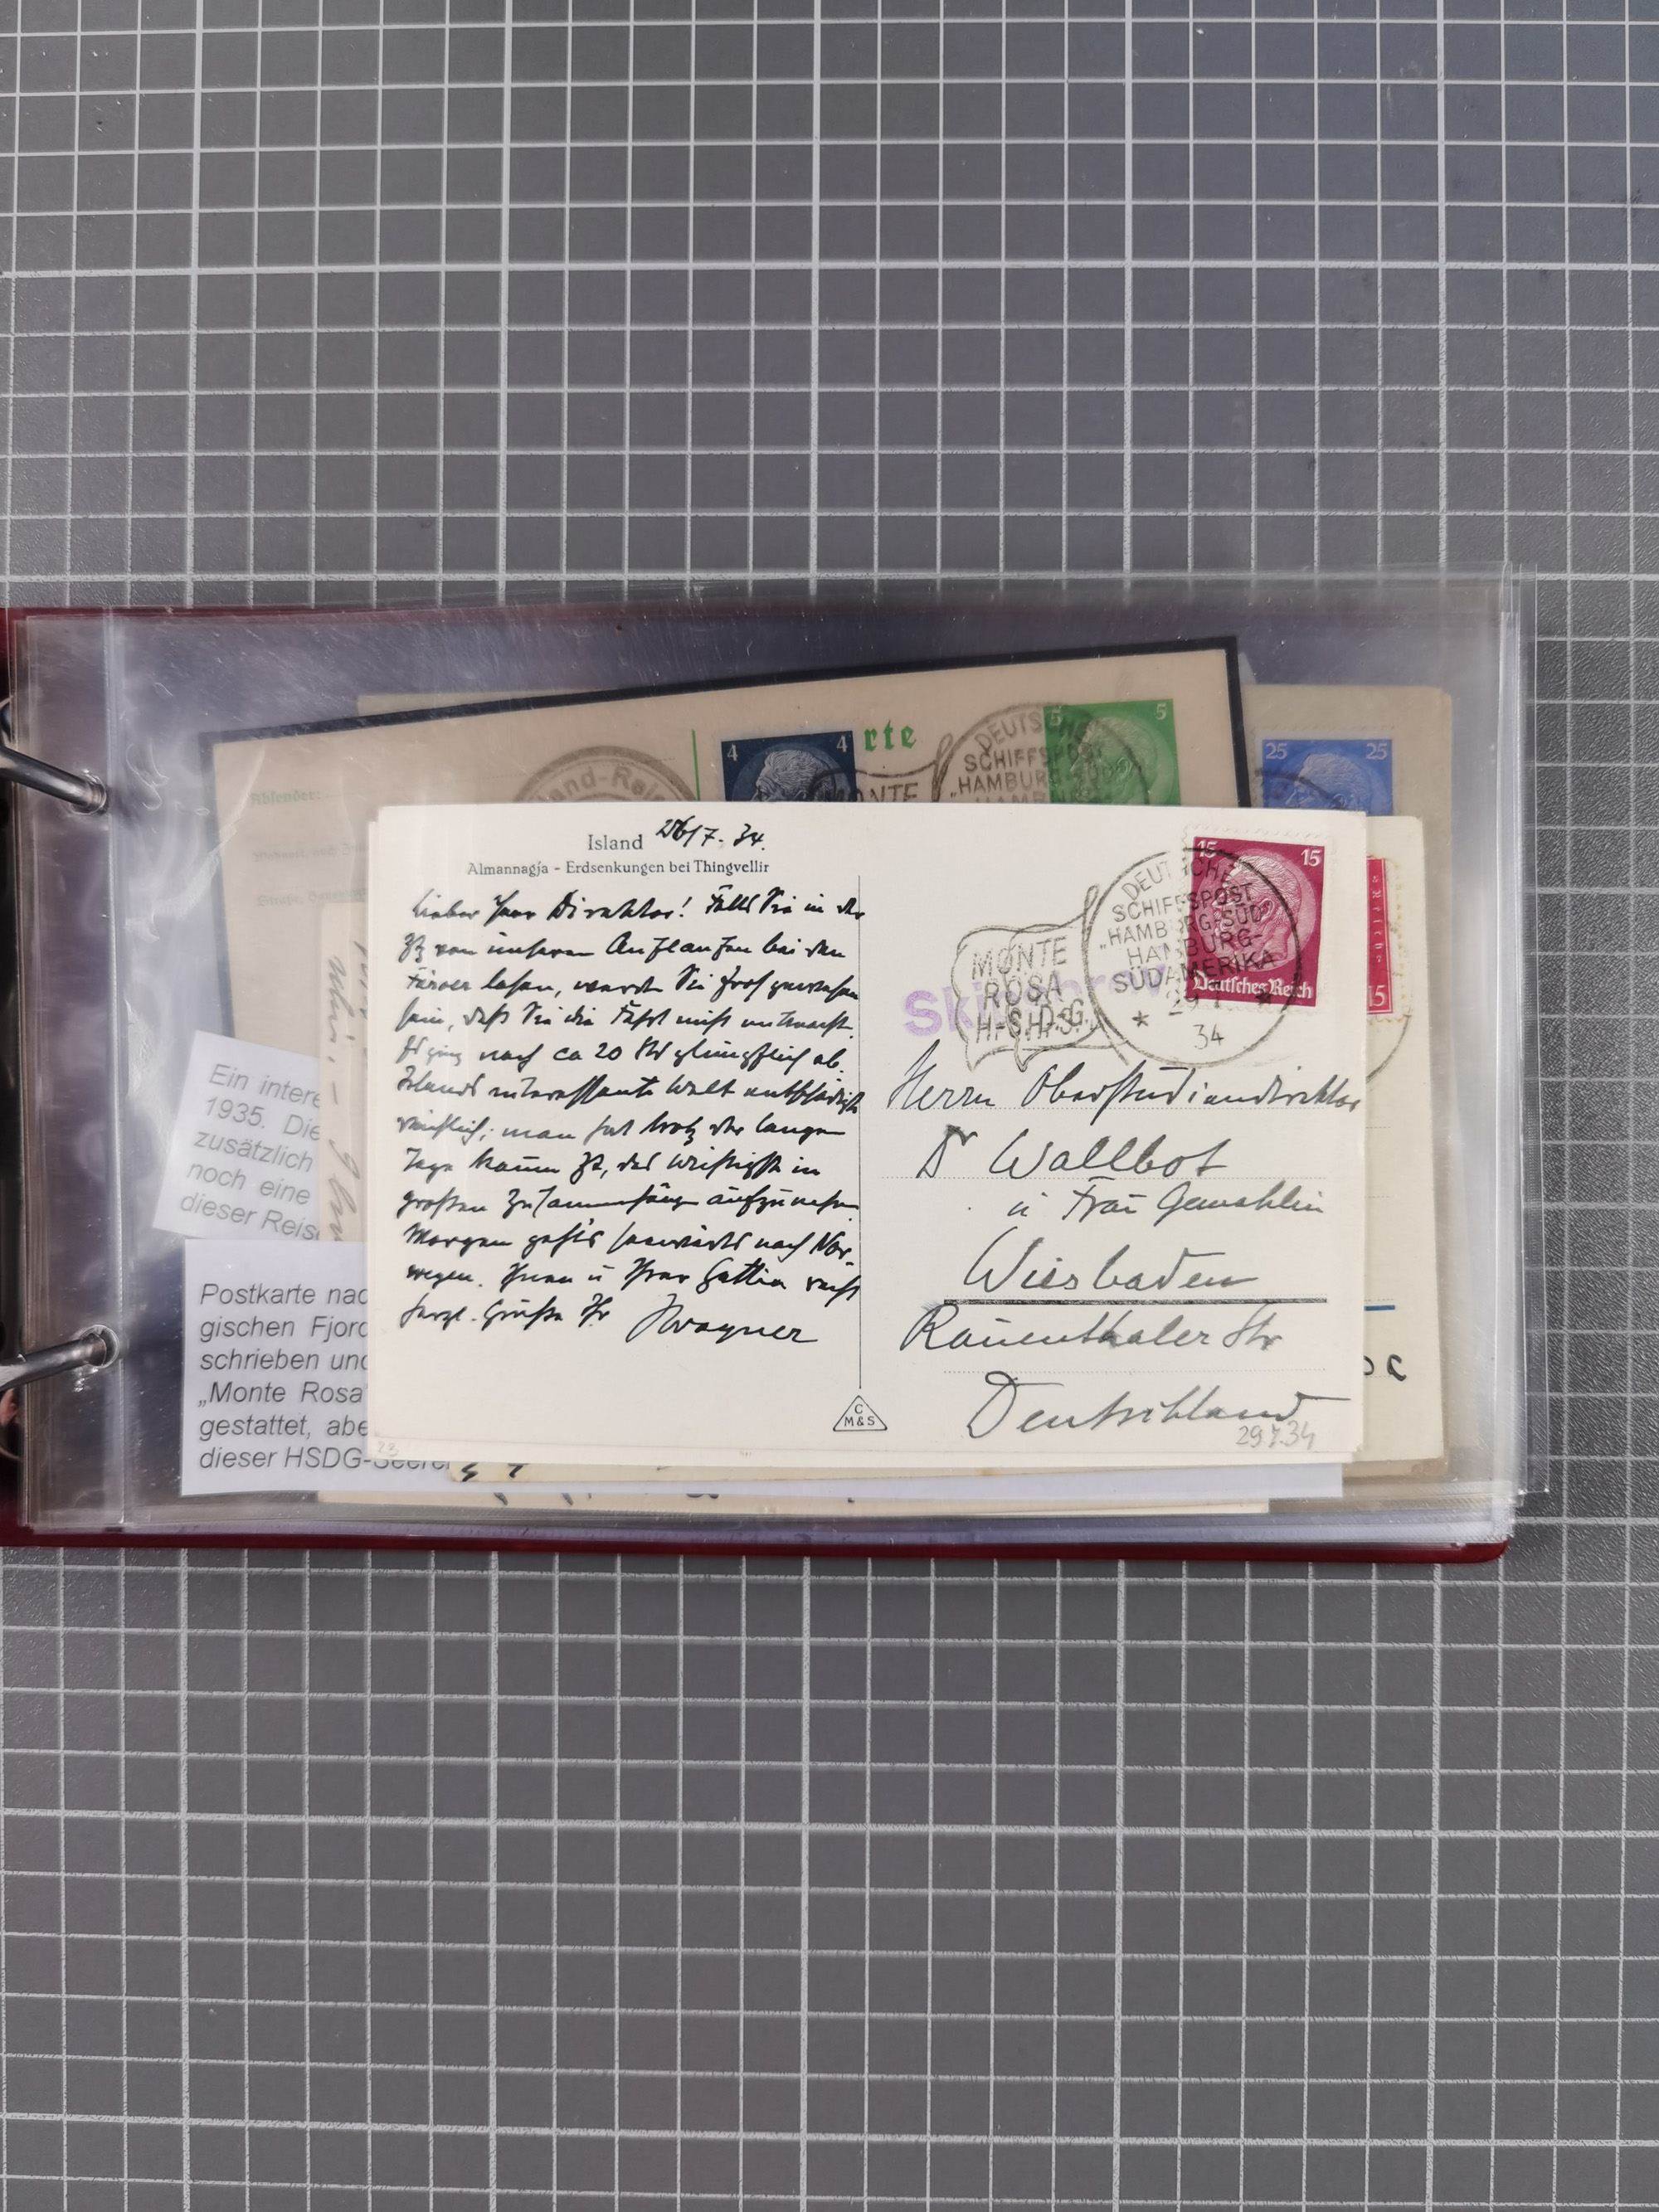 rte
4 4
5 5
25 25
DEUTSCHE
SCHIFFSPOST
HAMBURG-SÜD
MONTE
Absender:
Island 26/7. 34.
Almannagja - Erdsenkungen bei Thingvellir
Lieber Herr Direktor! Falls Sie in der
Ztg von unserem Auflaufen bei den
Färoer lasen, werden Sie froh gewesen
sein, daß Sie die Fahrt nicht mitmacht.
Es ging nach ca 20 Std glimpflich ab.
Islands interessante Welt entschädigte
reichlich; man hat trotz der langen
Tage kaum Zt, das Wichtigste in
großen Zusammenhängen aufzunehmen.
Morgen geht's seewärts nach Nor
wegen. Ihnen u Ihrer Gattin recht
herzl. Grüße Ihr Wagner
C
M&S
15 15
Deutsches Reich
DEUTSCHE
SCHIFFSPOST
„HAMBURG-SÜD"
HAMBURG-
SÜDAMERIKA
29.7
* 34
MONTE
ROSA
H-S.D.G.
Herrn Oberstudiendirektor
Dr Wallbot
u Frau Gemahlin
Wiesbaden
Rauenthaler Str
Deutschland
29.7.34
15
Ein intere
1935. Die
zusätzlich
noch eine
dieser Reis
Postkarte nac
gischen Fjord
schrieben und
„Monte Rosa
gestattet, abe
dieser HSDG-Seerei